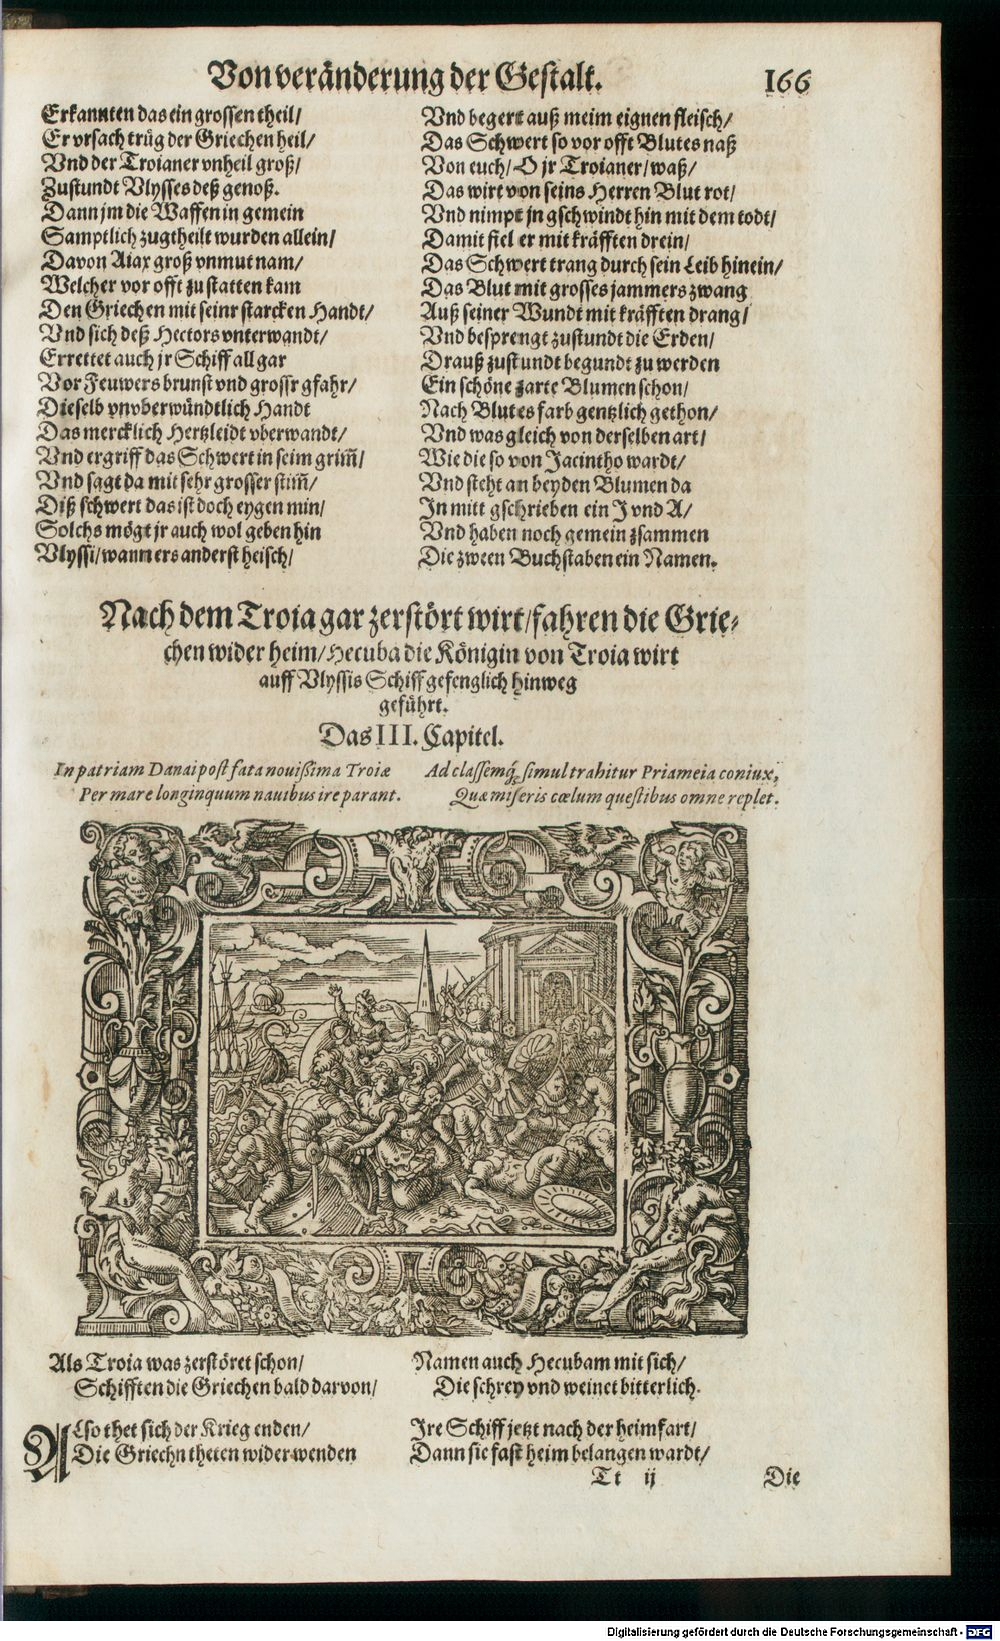 Von veränderung der Gestalt. 166
Erkannten das ein grossen theil/
Er vrsach trüg der Griechen heil/
Vnd der Troianer vnheil groß/
Zustundt Vlysses deß genoß.
Dann jm die Waffen in gemein
Samptlich zugtheilt wurden allein/
Davon Aiax groß vnmut nam/
Welcher vor offt zu statten kam
Den Griechen mit seinr starcken Handt/
Vnd sich deß Hectors vnterwandt/
Errettet auch jr Schiff all gar
Vor Feuwers brunst vnd grossr gfahr/
Dieselb vnvberwündtlich Handt
Das mercklich Hertzleidt vberwandt/
Vnd ergriff das Schwert in seim grim̃/
Vnd sagt da mit sehr grosser stim̃/
Diß schwert das ist doch eygen min/
Solchs mögt jr auch wol geben hin
Vlyssi/ wann ers anderst heisch/
Vnd begert auß meim eignen fleisch/
Das Schwert so vor offt Blutes naß
Von euch/ O jr Troianer/ waß/
Das wirt von seins Herren Blut rot/
Vnd nimpt jn gschwindt hin mit dem todt/
Damit fiel er mit kräfften drein/
Das Schwert trang durch sein Leib hinein/
Das Blut mit grosses jammers zwang
Auß seiner Wundt mit kräfften drang/
Vnd besprengt zustundt die Erden/
Drauß zustundt begundt zu werden
Ein schöne zarte Blumen schon/
Nach Blutes farb gentzlich gethon/
Vnd was gleich von derselben art/
Wie die so von Jacintho wardt/
Vnd steht an beyden Blumen da
In mitt gschrieben ein J vnd A/
Vnd haben noch gemein zsammen
Die zween Buchstaben ein Namen.
Nach dem Troia gar zerstört wirt/ fahren die Grie-
chen wider heim/ Hecuba die Königin von Troia wirt
auff Vlyssis Schiff gefenglich hinweg
geführt.
Das III. Capitel.
In patriam Danai post fata nouißima Troiæ
Per mare longinquum nauibus ire parant.
Ad classemq́; simul trahitur Priameia coniux,
Quæ miseris cœlum questibus omne replet.
Als Troia was zerstöret schon/
Schifften die Griechen bald darvon/
Namen auch Hecubam mit sich/
Die schrey vnd weinet bitterlich.
Also thet sich der Krieg enden/
Die Griechn theten wider wenden
Ire Schiff jetzt nach der heimfart/
Dann sie fast heim belangen wardt/
Tt ij Die
Digitalisierung gefördert durch die Deutsche Forschungsgemeinschaft - DFG